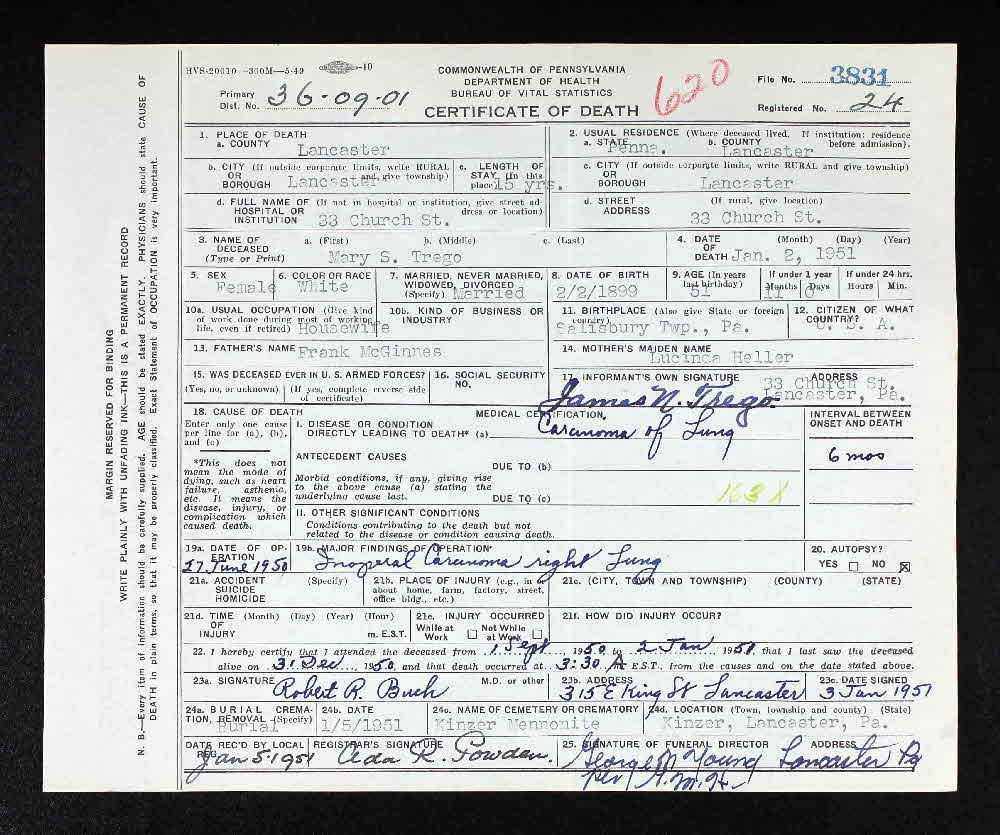 HVS-20010 -300M-5-49 -10
COMMONWEALTH OF PENNSYLVANIA
DEPARTMENT OF HEALTH
BUREAU OF VITAL STATISTICS
CERTIFICATE OF DEATH
620
File No. 3831
Primary Dist. No. 36-09-01
Registered No. 24
1. PLACE OF DEATH
a. COUNTY Lancaster
2. USUAL RESIDENCE (Where deceased lived. If institution: residence before admission).
a. STATE Penna. b. COUNTY Lancaster
b. CITY (If outside corporate limits, write RURAL and give township) OR BOROUGH Lancaster
c. LENGTH OF STAY (In this place) 15 yrs.
c. CITY (If outside corporate limits, write RURAL and give township) OR BOROUGH Lancaster
d. FULL NAME OF (If not in hospital or institution, give street address or location) HOSPITAL OR INSTITUTION 33 Church St.
d. STREET ADDRESS (If rural, give location) 33 Church St.
3. NAME OF DECEASED (Type or Print) a. (First) b. (Middle) c. (Last)
Mary S. Trego
4. DATE OF DEATH (Month) (Day) (Year)
Jan. 2, 1951
5. SEX Female
6. COLOR OR RACE White
7. MARRIED, NEVER MARRIED, WIDOWED, DIVORCED (Specify) Married
8. DATE OF BIRTH 2/2/1899
9. AGE (In years last birthday) 51
If under 1 year Months 11 Days 0
If under 24 hrs. Hours Min.
10a. USUAL OCCUPATION (Give kind of work done during most of working life, even if retired) Housewife
10b. KIND OF BUSINESS OR INDUSTRY
11. BIRTHPLACE (Also give State or foreign country) Salisbury Twp., Pa.
12. CITIZEN OF WHAT COUNTRY? U. S. A.
13. FATHER'S NAME Frank McGinnes
14. MOTHER'S MAIDEN NAME Lucinda Heller
15. WAS DECEASED EVER IN U. S. ARMED FORCES?
(Yes, no, or unknown) (If yes, complete reverse side of certificate)
16. SOCIAL SECURITY NO.
17. INFORMANT'S OWN SIGNATURE James N. Trego
ADDRESS 33 Church St. Lancaster, Pa.
18. CAUSE OF DEATH
Enter only one cause per line for (a), (b), and (c)
*This does not mean the mode of dying, such as heart failure, asthenia, etc. It means the disease, injury, or complication which caused death.
MEDICAL CERTIFICATION
I. DISEASE OR CONDITION DIRECTLY LEADING TO DEATH* (a) Carcinoma of Lung
INTERVAL BETWEEN ONSET AND DEATH
6 mos
ANTECEDENT CAUSES
Morbid conditions, if any, giving rise to the above cause (a) stating the underlying cause last.
DUE TO (b)
DUE TO (c)
163X
II. OTHER SIGNIFICANT CONDITIONS
Conditions contributing to the death but not related to the disease or condition causing death.
19a. DATE OF OPERATION 27 June 1950
19b. MAJOR FINDINGS OF OPERATION Inoperal Carcinoma right Lung
20. AUTOPSY?
YES NO X
21a. ACCIDENT SUICIDE HOMICIDE (Specify)
21b. PLACE OF INJURY (e.g., in or about home, farm, factory, street, office bldg., etc.)
21c. (CITY, TOWN AND TOWNSHIP) (COUNTY) (STATE)
21d. TIME OF INJURY (Month) (Day) (Year) (Hour) m. E.S.T.
21e. INJURY OCCURRED
While at Work Not While at Work
21f. HOW DID INJURY OCCUR?
22. I hereby certify that I attended the deceased from 1 Sept, 1950 to 2 Jan, 1951 that I last saw the deceased
alive on 31 Dec, 1950, and that death occurred at 3:30 A E.S.T., from the causes and on the date stated above.
23a. SIGNATURE Robert R. Buch M.D. or other
23b. ADDRESS 315 E King St Lancaster
23c. DATE SIGNED 3 Jan 1951
24a. BURIAL CREMATION, REMOVAL (Specify) Burial
24b. DATE 1/5/1951
24c. NAME OF CEMETERY OR CREMATORY Kinzer Mennonite
24d. LOCATION (Town, township and county) (State) Kinzer, Lancaster, Pa.
DATE REC'D BY LOCAL REG. Jan 5-1951
REGISTRAR'S SIGNATURE Ada R. Gowden.
25. SIGNATURE OF FUNERAL DIRECTOR ADDRESS
George N Young Lancaster Pa
per
MARGIN RESERVED FOR BINDING
WRITE PLAINLY WITH UNFADING INK—THIS IS A PERMANENT RECORD
N. B.—Every item of information should be carefully supplied. AGE should be stated EXACTLY. PHYSICIANS should state CAUSE OF
DEATH in plain terms, so that it may be properly classified. Exact Statement of OCCUPATION is very important.